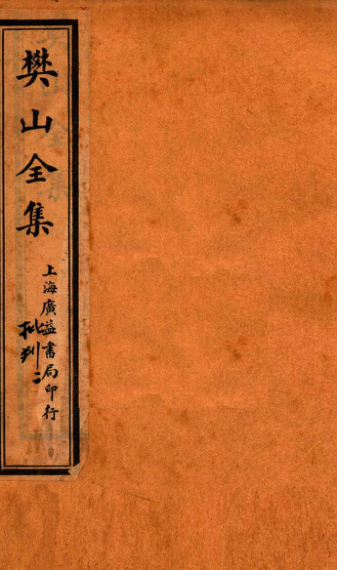 樊山全集
上海廣益書局印行
批判二